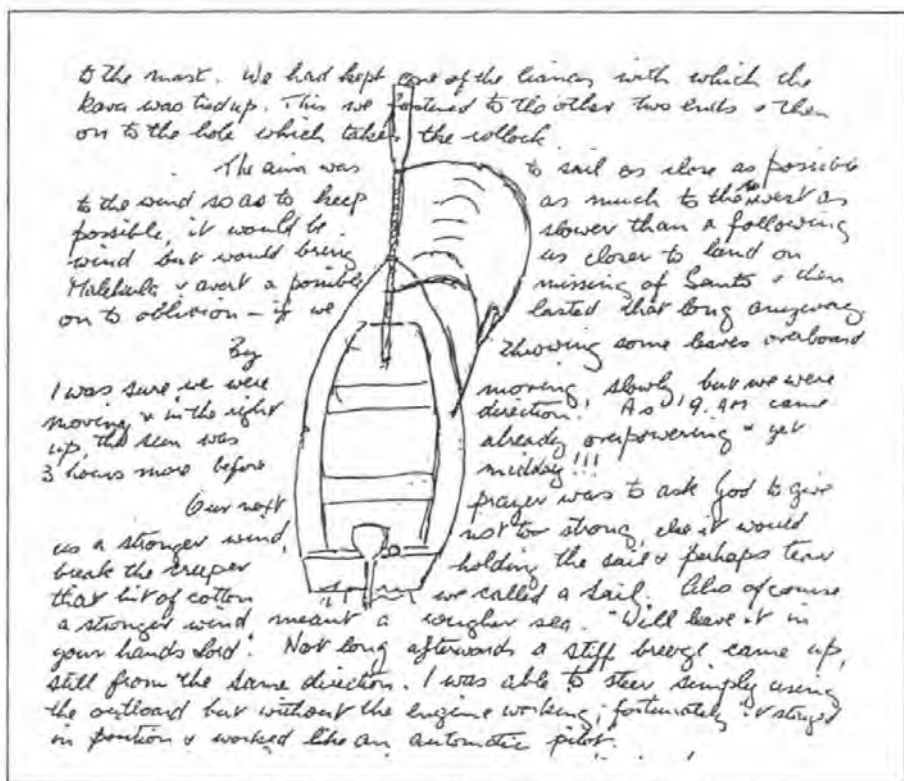 to the mast. We had kept one of the lianas with which the
kava was tied up. This we fastened to the other two ends & then
on to the hole which takes the rollock
The aim was to sail as close as possible
to the wind so as to keep as much to the west as
possible, it would be slower than a following
wind but would bring us closer to land on
Malekula & avert a possible missing of Santo & then
on to oblivion – if we lasted that long anyway
By throwing some leaves overboard
I was sure we were moving, slowly but we were
moving & in the right direction! As 9.AM came
up, the sun was already overpowering & yet
3 hours more before midday!!!
Our next prayer was to ask God to give
us a stronger wind, not too strong, else it would
break the creeper holding the sail & perhaps tear
that bit of cotton we called a sail. Also of course
a stronger wind meant a rougher sea. "Will leave it in
your hands Lord". Not long afterwards a stiff breeze came up,
still from the same direction. I was able to steer simply using
the outboard but without the engine working; fortunately it stayed
in position & worked like an automatic pilot.